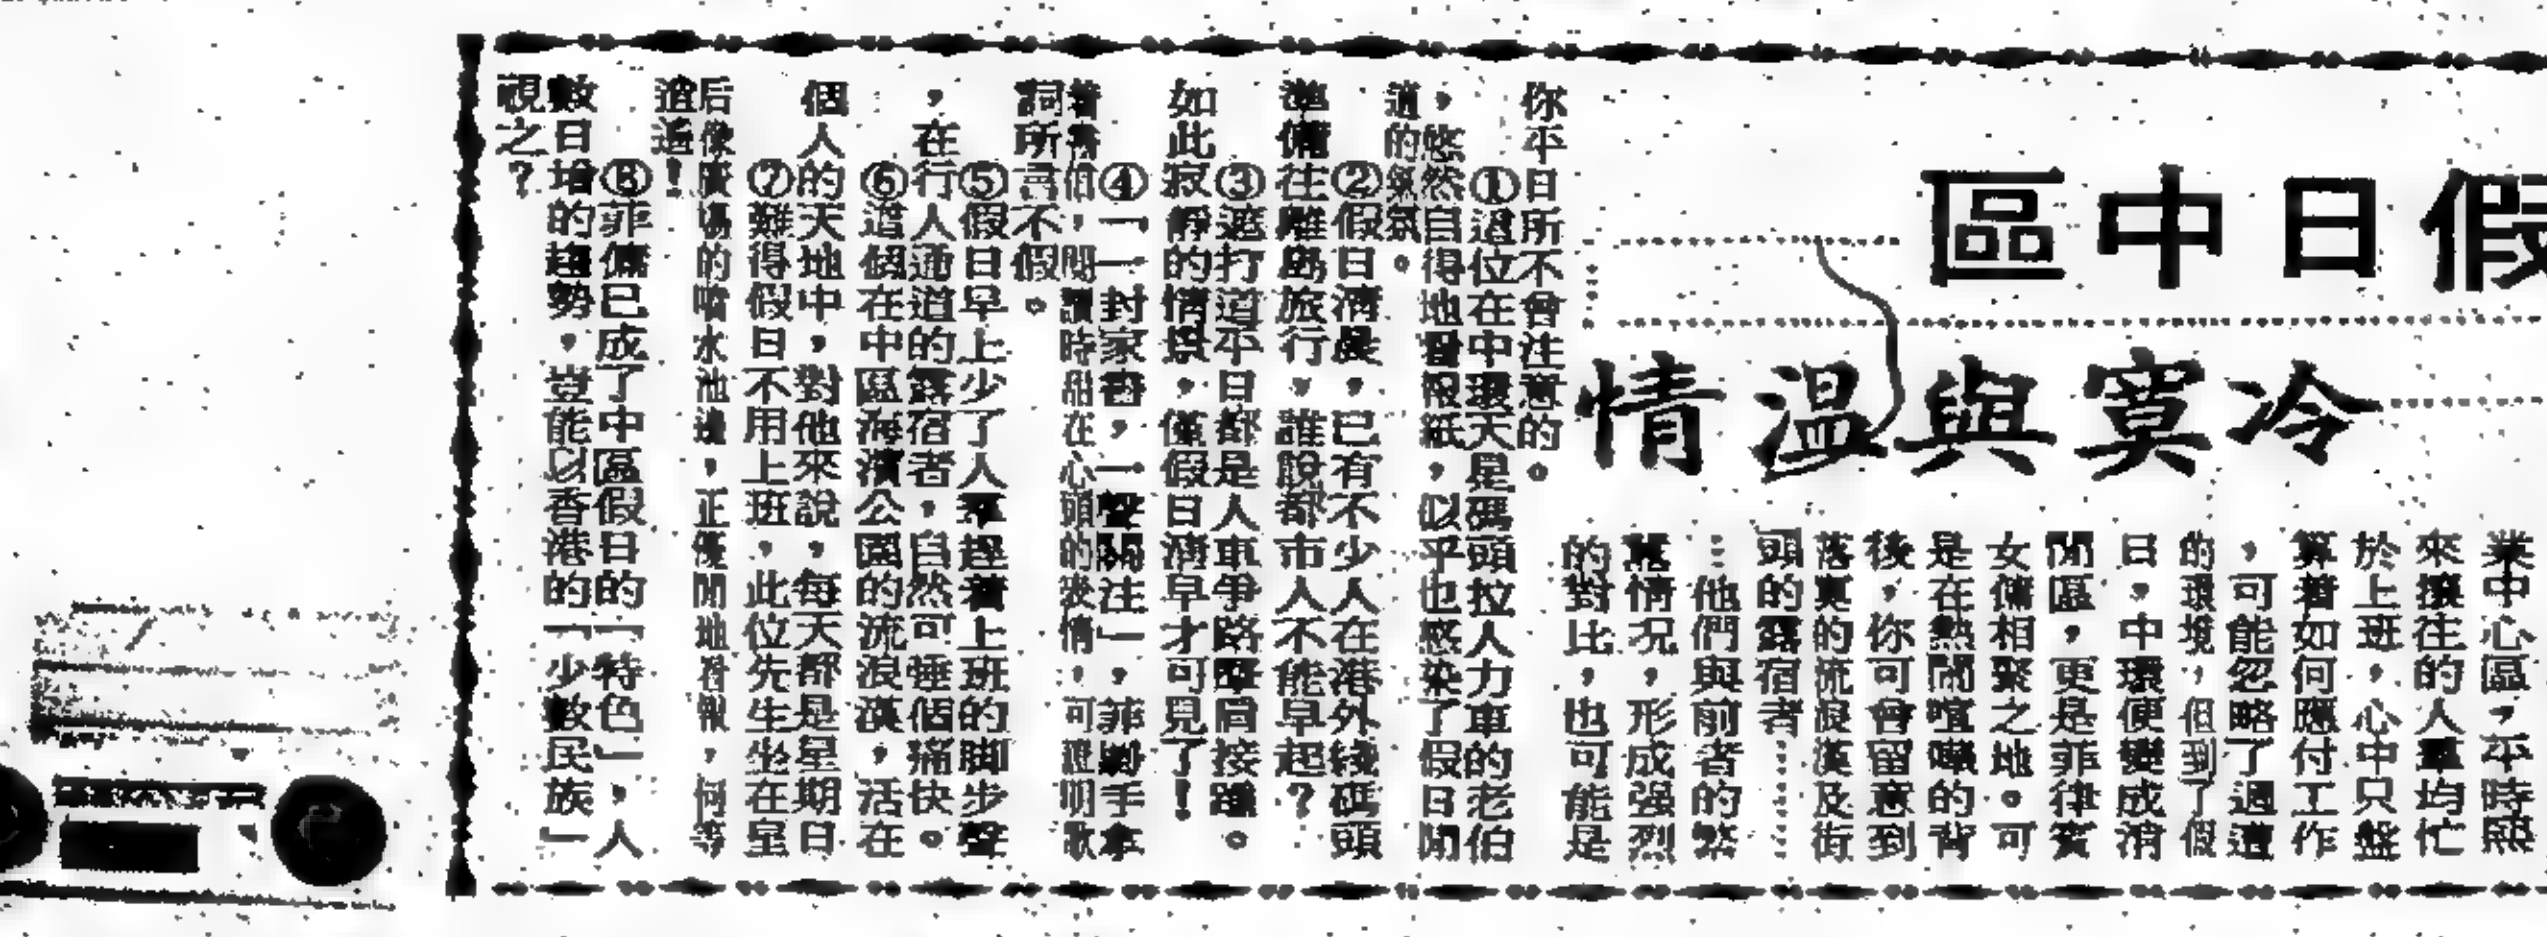 假日中區
冷寞與溫情
業中心區，平時熙
來攘往的人羣均忙
於上班，心中只盤
算着如何應付工作
，可能忽略了週遭
的環境，但到了假
日，中環便變成消
閒區，更是菲律賓
女傭相聚之地。可
是在熱鬧喧嘩的背
後，你可曾留意到
落寞的流浪漢及街
頭的露宿者……
…他們與前者的繁
情況，形成強烈
的對比，也可能是
你平日所不會注意的。
①這位在中環天星碼頭拉人力車的老伯
，悠然自得地看報紙，似乎也感染了假日閒
適的氣氛。
②假日清晨，已有不少人在港外綫碼頭
準備往離島旅行，誰說都市人不能早起？
③遮打道平日都是人車爭路摩肩接踵。
如此寂靜的情景，僅假日清早才可見了！
④「一封家書，一聲關注」，菲傭手拿
着書信，閱讀時甜在心頭的表情，可證明歌
詞所言不假。
⑤假日早上少了人羣趕着上班的脚步聲
，在行人通道的露宿者，自然可睡個痛快。
⑥這個在中區海濱公園的流浪漢，活在
個人的天地中，對他來說，每天都是星期日
⑦難得假日不用上班，此位先生坐在皇
后像廣場的噴水池邊，正優閒地看報，何等
逍遙！
⑧菲傭已成了中區假日的「特色」，人
數日增的趨勢，豈能以香港的「少數民族」
視之？